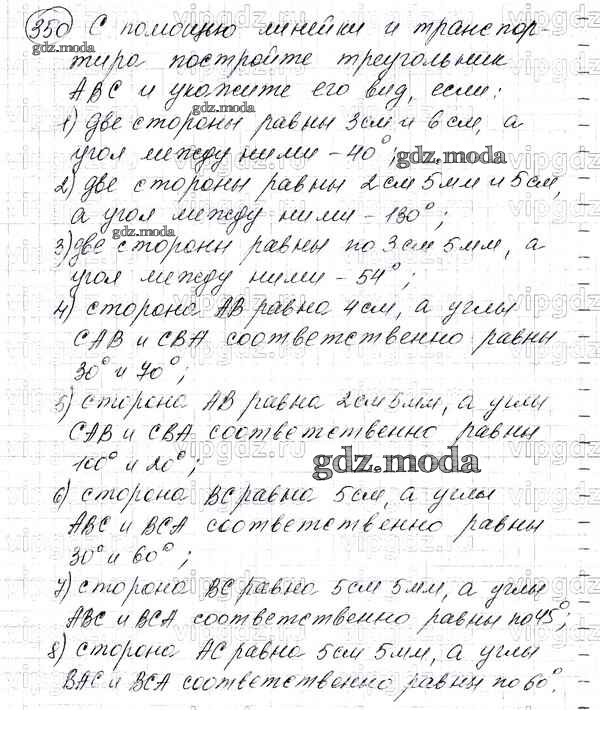 350 С помощью линейки и транспор-
gdz.moda
тира постройте треугольник
ABC и укажите его вид, если:
gdz.moda
1) две стороны равны 3см и 6см, а
угол между ними - 40°;
gdz.moda
2) две стороны равны 2см 5мм и 5см,
а угол между ними - 130°;
gdz.moda
3) две стороны равны по 3см 5мм, а
угол между ними - 54°;
4) сторона AB равна 4см, а углы
CAB и CBA соответственно равны
30° и 70°;
5) сторона AB равна 2см 5мм, а углы
CAB и CBA соответственно равны
100° и 20°;
gdz.moda
6) сторона BC равна 5см, а углы
ABC и BCA соответственно равны
30° и 60°;
7) сторона BC равна 5см 5мм, а углы
ABC и BCA соответственно равны по 45°;
8) сторона AC равна 5см 5мм, а углы
BAC и BCA соответственно равны по 60°.